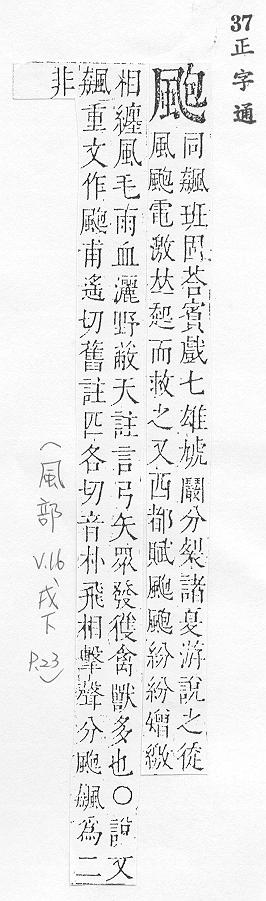 37正字通
颮
同飆班固荅賓戲七雄虓闞分裂諸夏游說之徒
風颮電激並起而救之又西都賦颮颮紛紛矰繳
相纏風毛雨血灑野蔽天註言弓矢眾發獲禽獸多也○說文
飆重文作颮甫遙切舊註匹各切音朴飛相擊聲分颮飆為二
非
(風部 V.16 戌下 P.23)